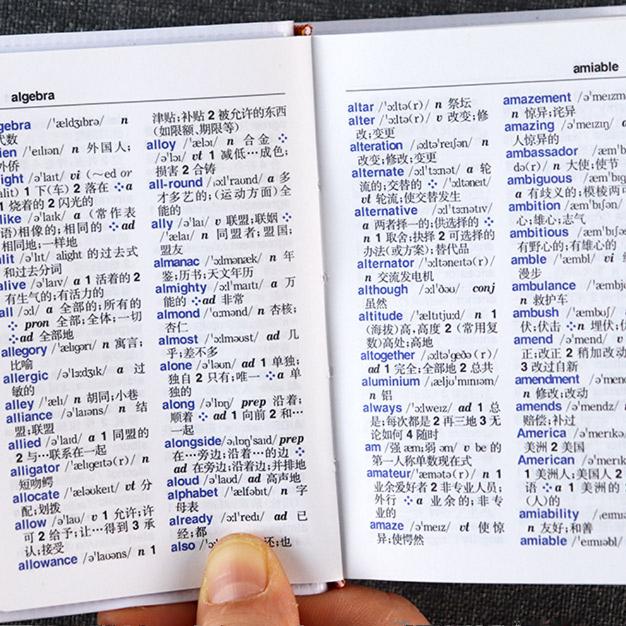 algebra
gebra /'ældʒɪbrə/ n
代数
ien /'eɪliən/ n 外国人;
外侨
ight /ə'laɪt/ vi (～ed or
alit) 1 下(车) 2 落在 ❖a
1 烧着的 2 闪光的
like /ə'laɪk/ a (常作表
语)相像的;相同的 ❖ad
相同地;一样地
lit /ə'lɪt/ alight 的过去式
和过去分词
alive /ə'laɪv/ a 1 活着的 2
有生气的;有活力的
all /ɔːl/ a 全部的;所有的
❖ pron 全部;全体;一切
❖ad 全部地
allegory /'æləgəri/ n 寓言;
比喻
allergic /ə'lɜːdʒɪk/ a 过
敏的
alley /'æli/ n 胡同;小巷
alliance /ə'laɪəns/ n 结
盟;联盟
allied /ə'laɪd/ a 1 同盟的
2 与…联系在一起
alligator /'ælɪgeɪtə(r)/ n
短吻鳄
allocate /'æləʊkeɪt/ vt 分
配;划拨
allow /ə'laʊ/ v 1 允许;许
可 2 给予;让…得到 3 承
认;接受
allowance /ə'laʊəns/ n 1
津贴;补贴 2 被允许的东西
(如限额、期限等)
alloy /'ælɔɪ/ n 合金 ❖
/ə'lɔɪ/ vt 1 减低…成色;
损害 2 合铸
all-round /ˌɔːl'raʊnd/ a 多
才多艺的;(运动方面)全
能的
ally /ə'laɪ/ v 联盟;联姻 ❖
/'ælaɪ/ n 同盟者;盟国;
盟友
almanac /'ɔːlmənæk/ n 年
鉴;历书;天文年历
almighty /ɔːl'maɪti/ a 万
能的 ❖ad 非常
almond /'ɑːmənd/ n 杏核;
杏仁
almost /'ɔːlməʊst/ ad 几
乎;差不多
alone /ə'ləʊn/ ad 1 单独;
独自 2 只有;唯一 ❖a 单
独的
along /ə'lɒŋ/ prep 沿着;
顺着 ❖ad 1 向前 2 和…
一起
alongside /əˌlɒŋ'saɪd/ prep
在…旁边;沿着…的边 ❖
ad 在旁边;沿着边;并排地
aloud /ə'laʊd/ ad 高声地
alphabet /'ælfəbɪt/ n 字
母表
already /ɔːl'redi/ ad 已
经;都
also /'ɔː 还;也
amiable
altar /'ɔːltə(r)/ n 祭坛
alter /'ɔːltə(r)/ v 改变;修
改;变更
alteration /ˌɔːltə'reɪʃn/ n
改变;修改;变更
alternate /ɔːl'tɜːnət/ a 轮
流的;交替的 ❖ /'ɔːltəneɪt/
vt 轮流;使交替发生
alternative /ɔːl'tɜːnətɪv/
a 两者择一的;供选择的 ❖
n 1 取舍;抉择 2 可选择的
办法(或方案);替代品
alternator /'ɔːltəneɪtə(r)/
n 交流发电机
although /ɔːl'ðəʊ/ conj
虽然
altitude /'æltɪtjuːd/ n 1
(海拔)高,高度 2 (常用复
数)高处;高地
altogether /ˌɔːltə'geðə(r)/
ad 1 完全;全部地 2 总共
aluminium /ˌæljʊ'mɪnɪəm/
n 铝
always /'ɔːlweɪz/ ad 1 总
是;每次都是 2 再三地 3 无
论如何 4 随时
am /强 æm;弱 əm/ v be 的
第一人称单数现在式
amateur /'æmətə(r)/ n 1
业余爱好者 2 非专业人员;
外行 ❖a 业余的;非专
业的
amaze /ə'meɪz/ vt 使惊
异;使愕然
amazement /ə'meɪzm
n 惊异;诧异
amazing /ə'meɪzɪŋ/ a
人惊异的
ambassador /æm'b
də(r)/ n 大使;使节
ambiguous /æm'bɪg
a 有歧义的;模棱两可
ambition /æm'bɪʃn/
心;雄心;志气
ambitious /æm'bɪʃə
有野心的;有雄心的
amble /'æmbl/ vi 缓
漫步
ambulance /'æmbjə
n 救护车
ambush /'æmbʊʃ/
伏;伏击 ❖n 埋伏;伏
amend /ə'mend/ v
正;改正 2 稍加改动
3 改过自新
amendment /ə'mend
n 修改;改动
amends /ə'mendz/
赔偿;补过
America /ə'merɪkə
美洲 2 美国
American /ə'merɪkə
1 美洲人;美国人 2
语 ❖a 1 美洲的
(人)的
amiability /ˌeɪmiə
n 友好;和善
amiable /'eɪmiəbl/